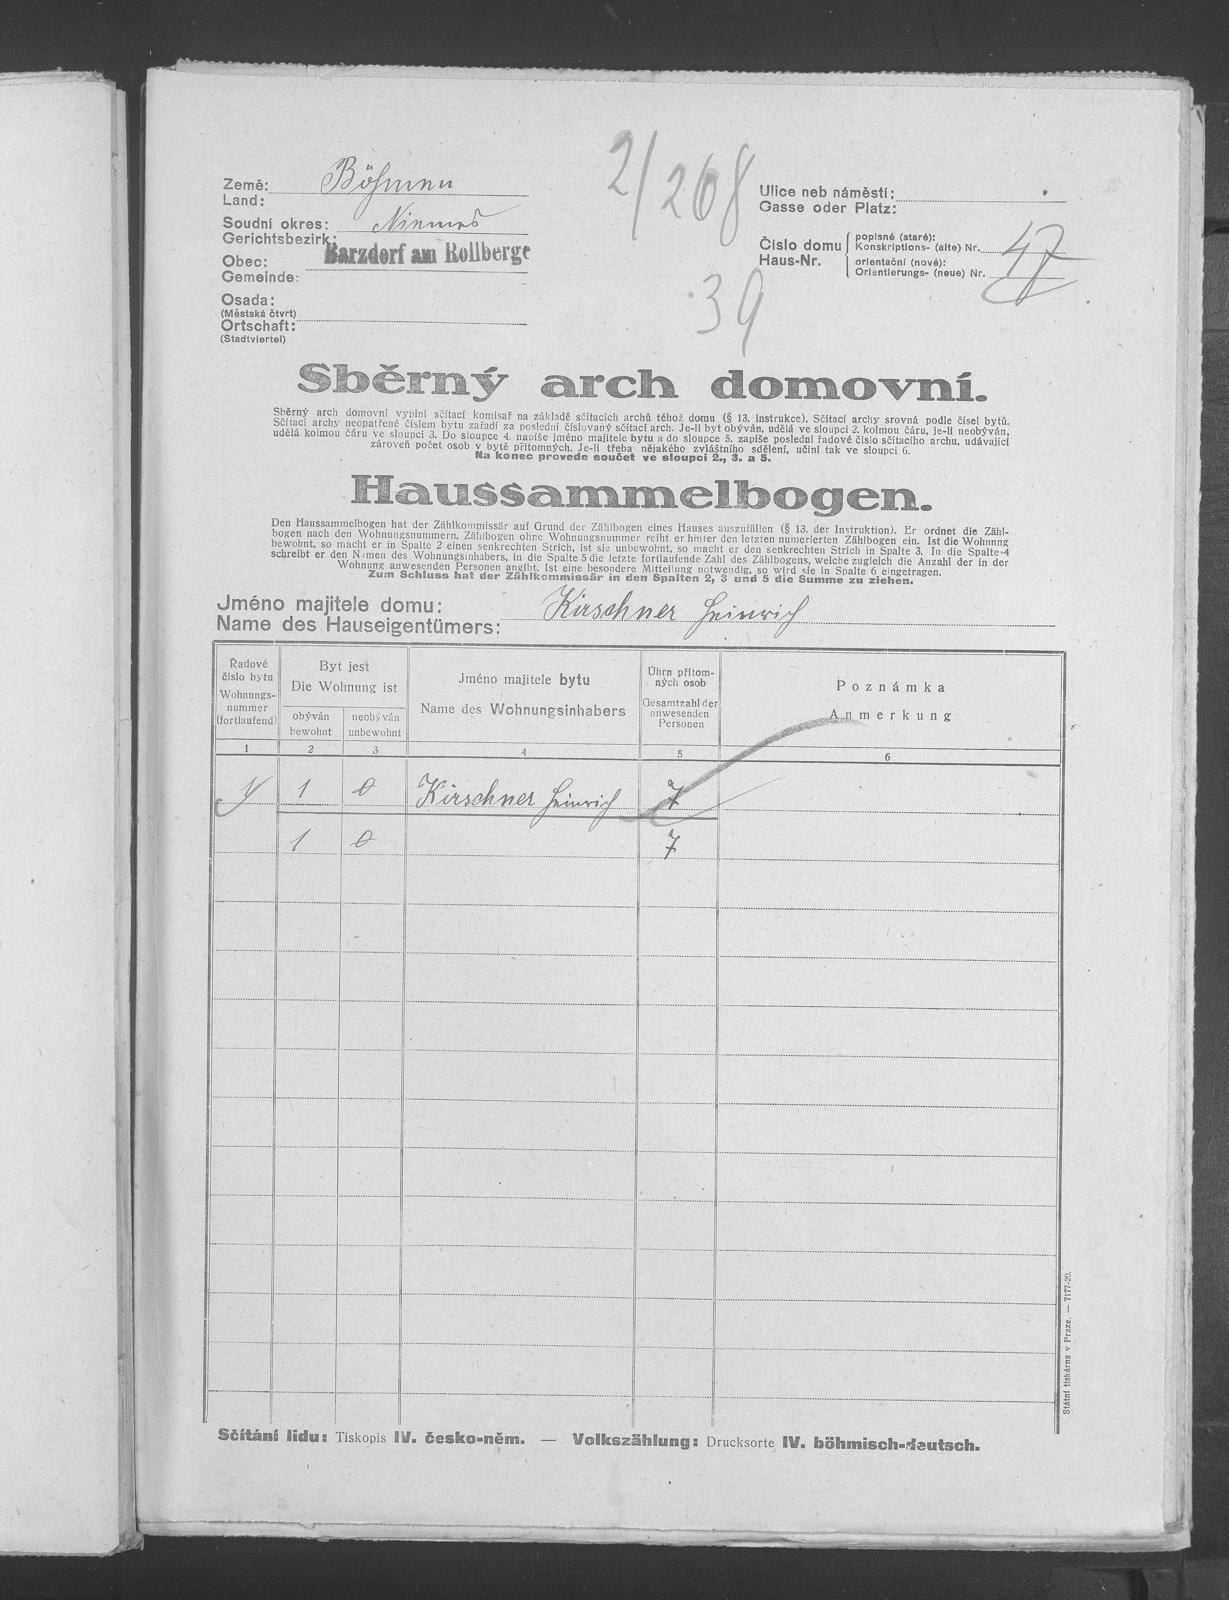 2/268
39
Země: Böhmen
Land:
Soudní okres: Niemes
Gerichtsbezirk:
Barzdorf am Rollberge
Obec:
Gemeinde:
Osada:
(Městská čtvrt)
Ortschaft:
(Stadtviertel)
Ulice neb náměstí:
Gasse oder Platz:
Číslo domu
Haus-Nr.
popisné (staré):
Konskriptions- (alte) Nr. 47
orientační (nové):
Orientierungs- (neue) Nr.
Sběrný arch domovní.
Sběrný arch domovní vyplní sčítací komisař na základě sčítacích archů téhož domu (§ 13. instrukce). Sčítací archy srovná podle čísel bytů.
Sčítací archy neopatřené číslem bytu zařadí za poslední číslovaný sčítací arch. Je-li byt obýván, udělá ve sloupci 2. kolmou čáru, je-li neobýván,
udělá kolmou čáru ve sloupci 3. Do sloupce 4. napíše jméno majitele bytu a do sloupce 5. zapíše poslední řadové číslo sčítacího archu, udávající
zároveň počet osob v bytě přítomných. Je-li třeba nějakého zvláštního sdělení, učiní tak ve sloupci 6.
Na konec provede součet ve sloupci 2., 3. a 5.
Haussammelbogen.
Den Haussammelbogen hat der Zählkommissär auf Grund der Zählbogen eines Hauses auszufüllen (§ 13. der Instruktion). Er ordnet die Zähl-
bogen nach den Wohnungsnummern. Zählbogen ohne Wohnungsnummer reiht er hinter den letzten numerierten Zählbogen ein. Ist die Wohnnng
bewohnt, so macht er in Spalte 2 einen senkrechten Strich, ist sie unbewohnt, so macht er den senkrechten Strich in Spalte 3. In die Spalte 4
schreibt er den Namen des Wohnungsinhabers, in die Spalte 5 die letzte fortlaufende Zahl des Zählbogens, welche zugleich die Anzahl der in der
Wohnung anwesenden Personen angibt. Ist eine besondere Mitteilung notwendig, so wird sie in Spalte 6 eingetragen.
Zum Schluss hat der Zählkommissär in den Spalten 2, 3 und 5 die Summe zu ziehen.
Jméno majitele domu: Kirschner Heinrich
Name des Hauseigentümers:
Řadové
číslo bytu
Wohnungs-
nummer
(fortlaufend)
Byt jest
Die Wohnung ist
obýván
bewohnt
neobýván
unbewohnt
Jméno majitele bytu
Name des Wohnungsinhabers
Úhrn přítom-
ných osob
Gesamtzahl der
anwesenden
Personen
Poznámka
Anmerkung
1 2 3 4 5 6
1 0 Kirschner Heinrich 7
1 0 7
Státní tiskárna v Praze. — 7177-20.
Sčítání lidu: Tiskopis IV. česko-něm. — Volkszählung: Drucksorte IV. böhmisch-deutsch.